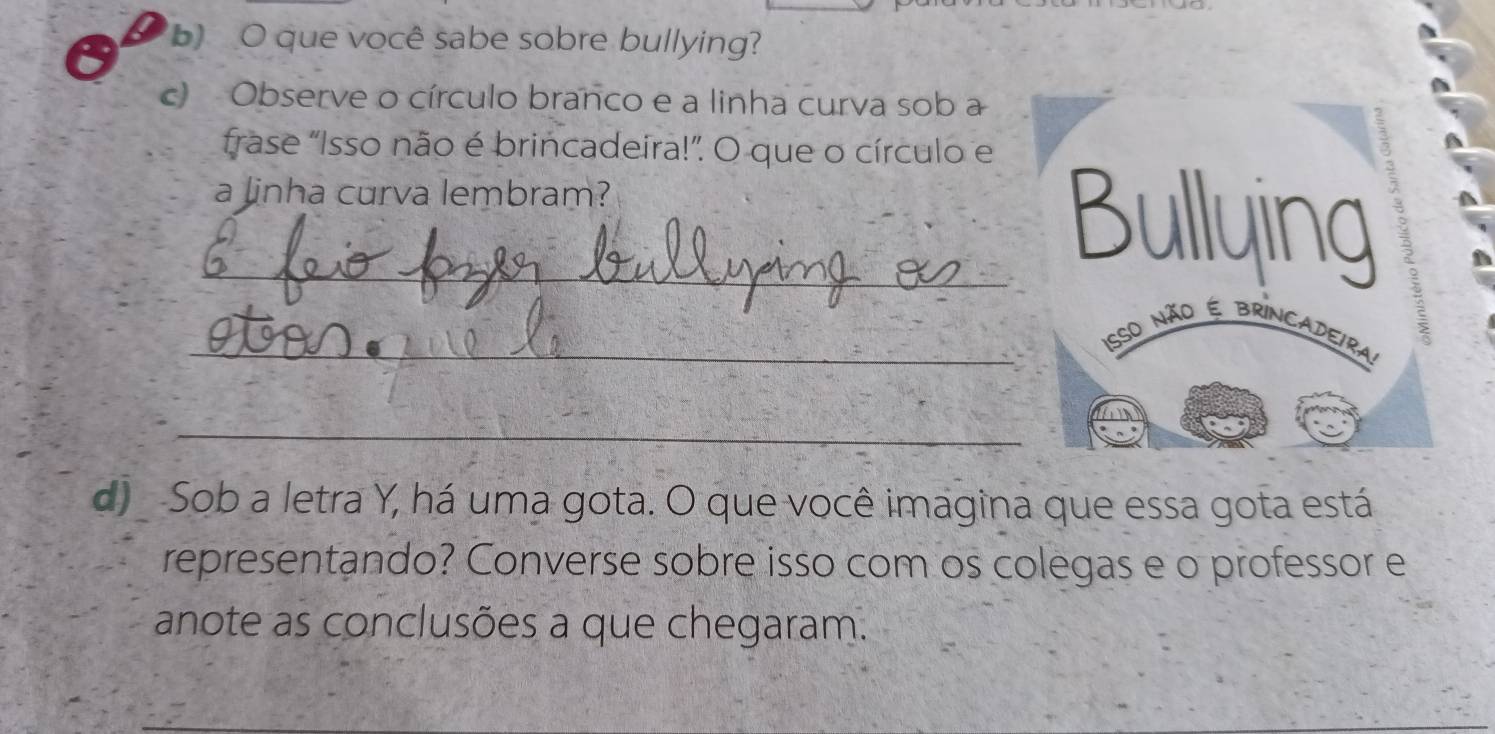 b) O que você sabe sobre bullying?
c) Observe o círculo branco e a linha curva sob a
frase "Isso não é brincadeira!". O que o círculo e
a linha curva lembram?
É feio fazer bullying as
Bullying
ISSO NÃO É BRINCADEIRA!
©Ministério Público de Santa Catarina
d) Sob a letra Y, há uma gota. O que você imagina que essa gota está
representando? Converse sobre isso com os colegas e o professor e
anote as conclusões a que chegaram.